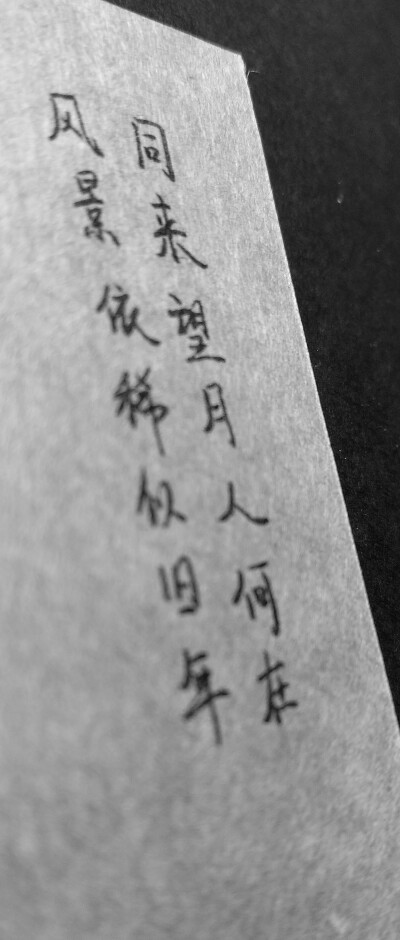 同来望月人何在
风景依稀似旧年